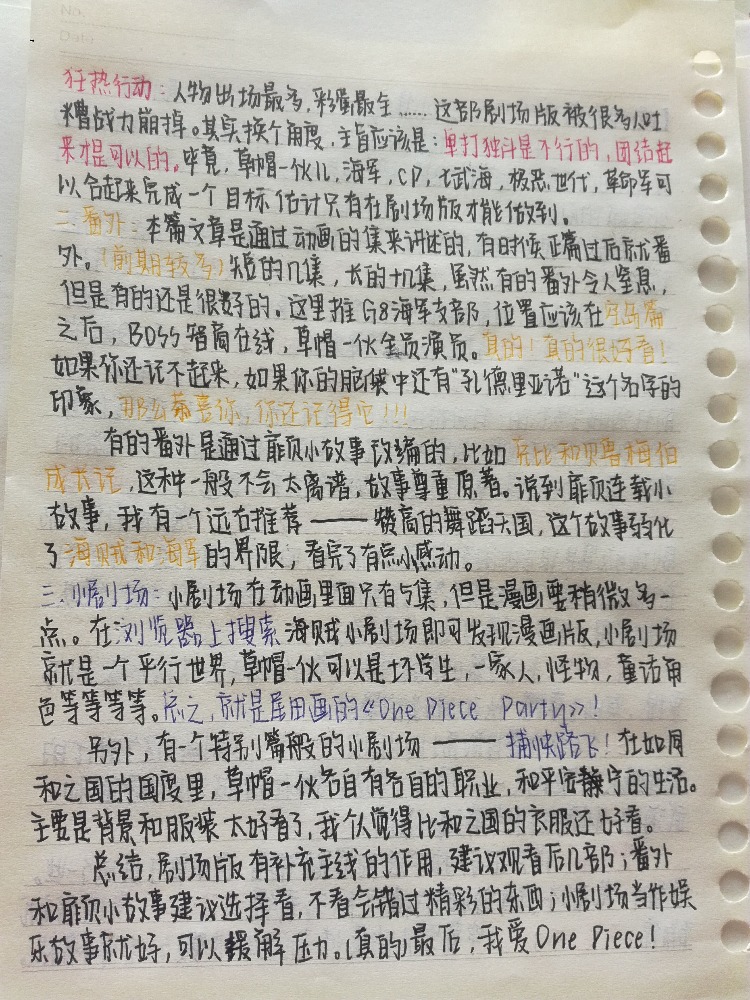 No.
Date
狂热行动：人物出场最多，彩蛋最全……这部剧场版被很多人吐
糟战力崩掉。其实换个角度，主旨应该是：单打独斗是不行的，团结起
来才是可以的。毕竟，草帽一伙儿，海军，CP，七武海，极恶世代，革命军可
以合起来完成一个目标估计只有在剧场版才能做到。
二.番外：本篇文章是通过动画的集来讲述的，有时候正篇过后就番
外。（前期较多）短的几集，长的十几集，虽然有的番外令人窒息，
但是有的还是很好的。这里推G8海军支部，位置应该在空岛篇
之后，BOSS智商在线，草帽一伙全员演员。真的！真的很好看！
如果你还记不起来，如果你的脑袋中还有“孔德里亚诺”这个名字的
印象，那么恭喜你，你还记得它！！！
有的番外是通过扉页小故事改编的，比如克比和贝鲁梅伯
成长记，这种一般不会太离谱，故事尊重原著。说到扉页连载小
故事，我有一个远古推荐——赞高的舞蹈天国，这个故事弱化
了海贼和海军的界限，看完了有点小感动。
三.小剧场：小剧场在动画里面只有5集，但是漫画要稍微多一
点。在浏览器上搜索海贼小剧场即可发现漫画版，小剧场
就是一个平行世界，草帽一伙可以是坏学生，一家人，怪物，童话角
色等等等等。总之，就是尾田画的《One Piece Party》！
另外，有一个特别篇般的小剧场——捕快路飞！在如同
和之国的国度里，草帽一伙各自有各自的职业，和平安静宁的生活。
主要是背景和服装太好看了，我认觉得比和之国的衣服还好看。
总结，剧场版有补充主线的作用，建议观看后几部；番外
和扉页小故事建议选择看，不看会错过精彩的东西；小剧场当作娱
乐故事就好，可以缓解压力。（真的）最后，我爱One Piece！